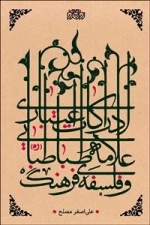 ادراکات اعتباری
علامه طباطبایی
و فلسفه فرهنگ
علی‌اصغر مصلح